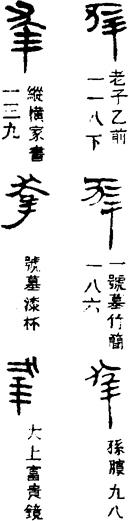 老子乙前
一一八下
一號墓竹簡
一八六
孫臏九八
縱橫家書
一三九
號墓漆杯
大上富貴鏡